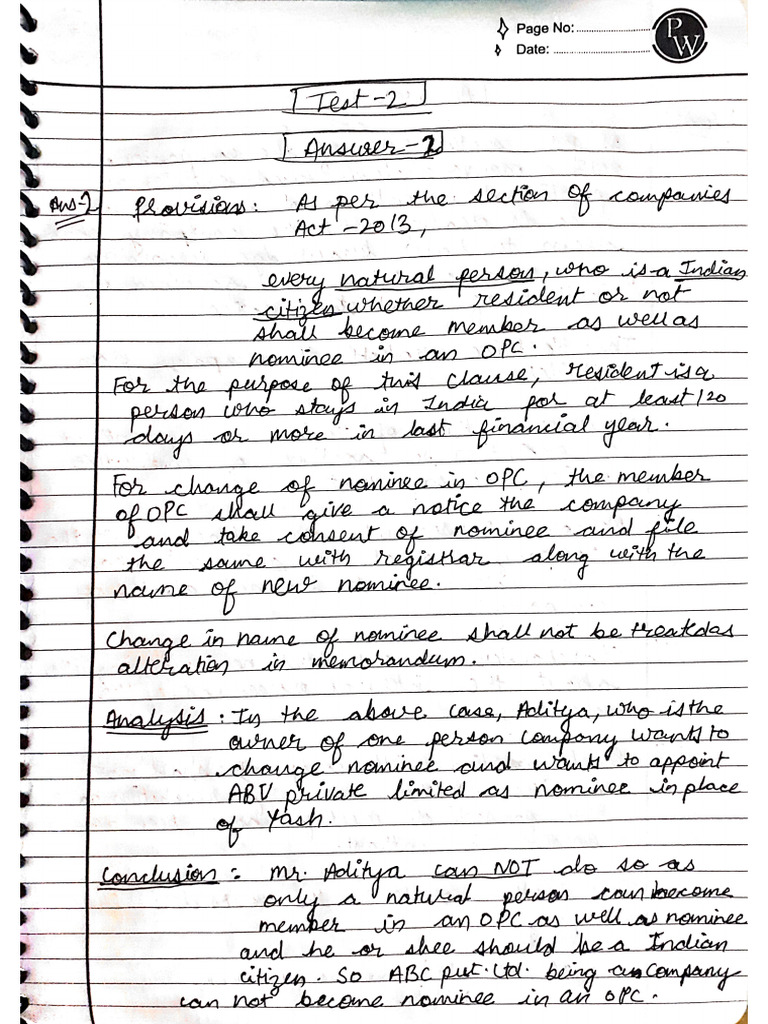 Page No:
Date:
PW
Test-2
Answer-2
Ans-2 Provision: As per the section of companies
Act -2013,
every natural person, who is a Indian
citizen whether resident or not
shall become member as well as
nominee in an OPC.
For the purpose of this clause, resident is a
person who stays in India for at least 120
days or more in last financial year.
For change of nominee in OPC, the member
of OPC shall give a notice the company
and take consent of nominee and file
the same with registrar along with the
name of new nominee.
Change in name of nominee shall not be treatdas
alteration in memorandum.
Analysis: In the above case, Aditya, who is the
owner of one person company wants to
change nominee and wants to appoint
ABV private limited as nominee in place
of Yash.
Conclusion: Mr. Aditya can NOT do so as
only a natural person can become
member in an OPC as well as nominee
and he or shee should be a Indian
citizen. So ABC pvt. Ltd. being an Company
can not become nominee in an OPC.